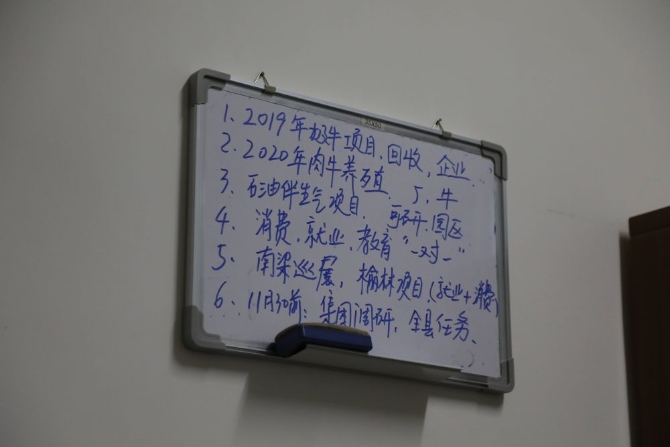 1、2019年奶牛项目、回收、企业
2、2020年肉牛养殖、厂、牛
3、石油伴生气项目、可研、园区
4、消费、就业、教育“一对一”
5、南梁巡展，榆林项目（就业+消费）
6、11月30前：集团调研，全县任务、